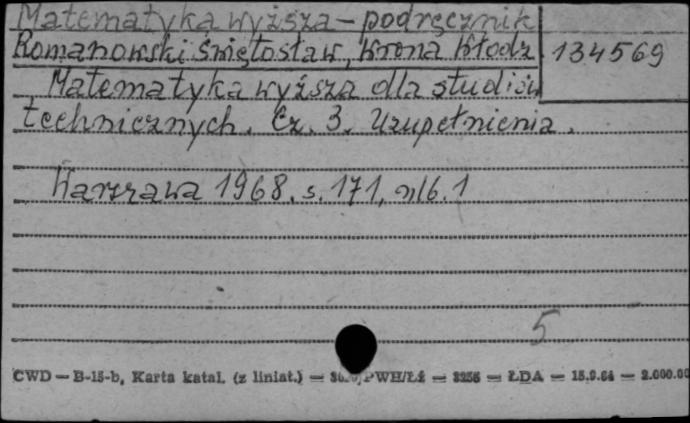 Matematyka wyższa - podręcznik
Romanowski Świętosław, Wrona Włodz
134569
Matematyka wyższa dla studiów
technicznych. Cz. 3. Uzupełnienia.
Warszawa 1968. s. 171, nlb. 1
5
CWD — B-15-b, Karta katal. (z liniat.) — PWH/Łź — 3256 — ŁDA — 15.9.64 — 2.000.00